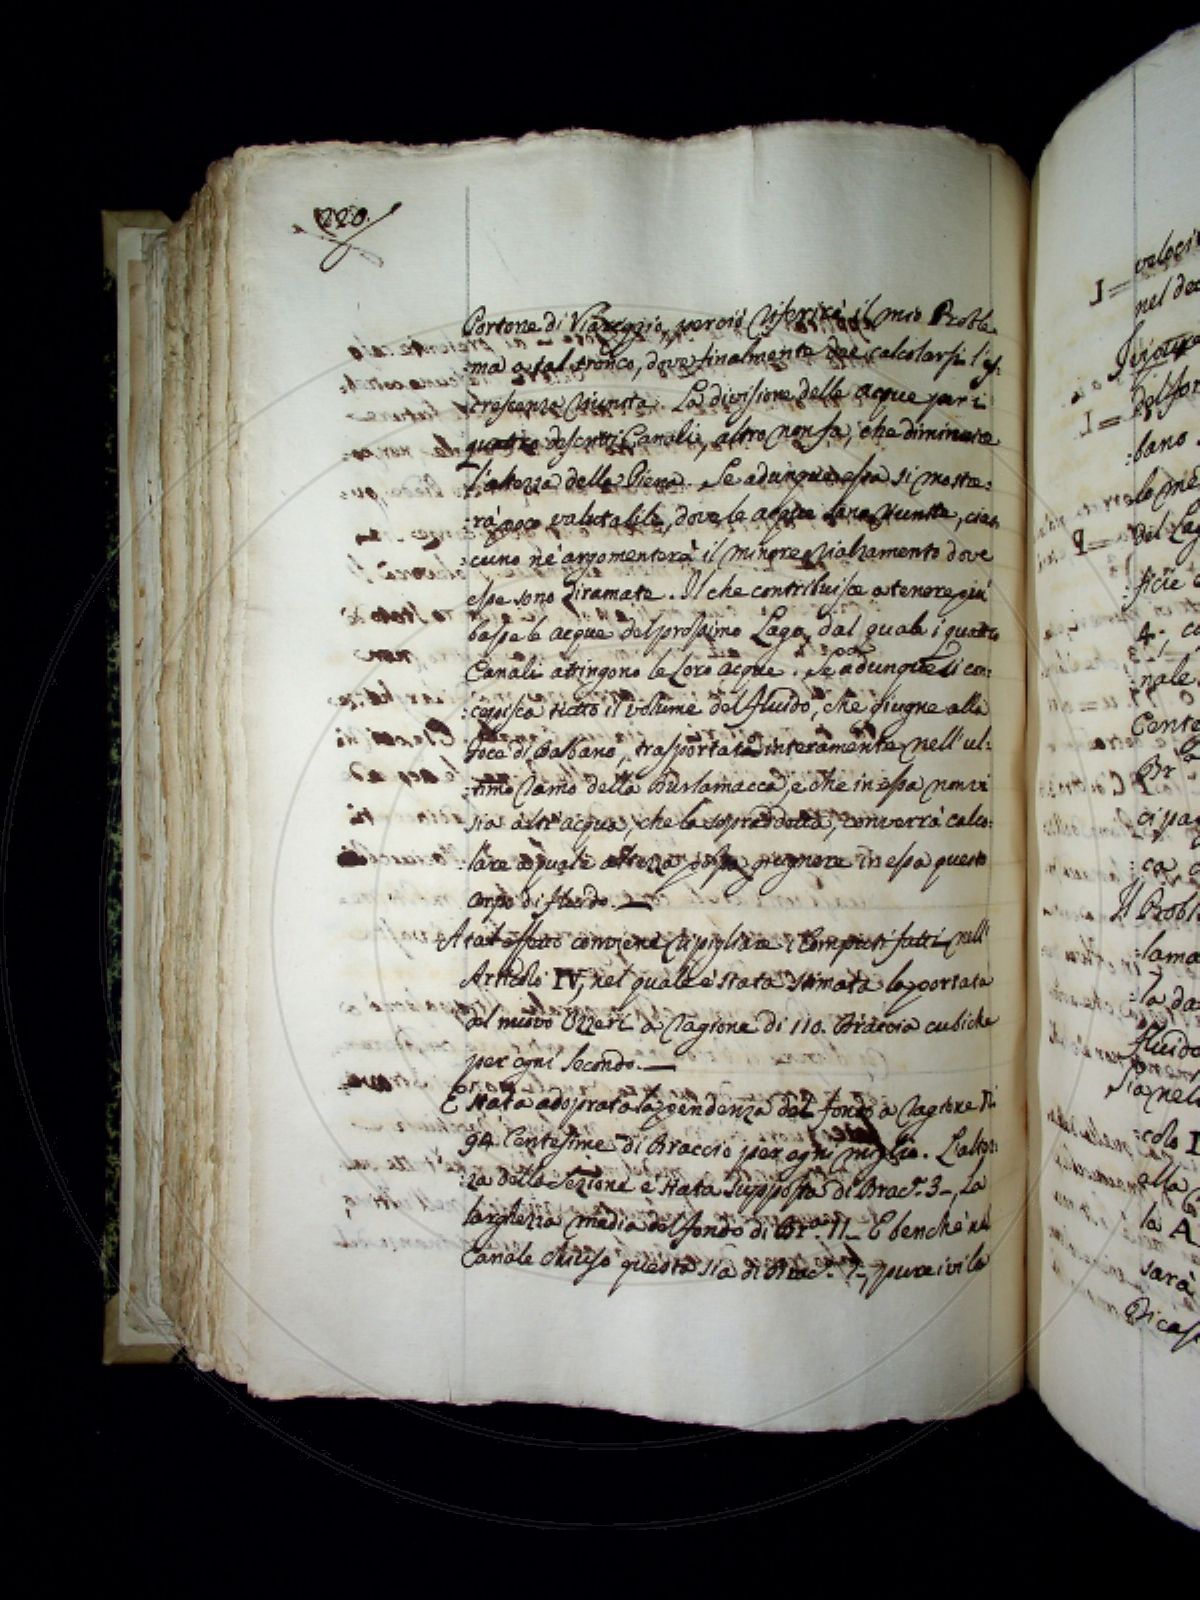 220.
Portone di Viareggio, perciò riferirò il mio Proble-
ma a tal tronco, dove finalmente dee calcolarsi l'es-
crescenza riunita. La divisione delle acque per i
quattro descritti Canali, altro non fa, che diminuire
l'altezza della Piena. Se adunque essa si mostre:
:rà poco valutabile, dove le acque sono riunite, cias
:cuno ne argomenterà il minore rialzamento dove
esse sono diramate. Il che contribuisce a tenere più
basse le acque del prossimo Lago, dal quale i quattro
Canali attingono le loro acque. Se adunque si con:
:cepisca tutto il volume del fluido, che giugne alla
foce di Balbano, trasportata interamente nell'ul:
:timo ramo della Burlamacca, e che in essa non vi
sia altr'acqua, che la sopraddetta, converrà calco:
lare a quale altezza possa giugnere in essa questo
corpo di fluido. —
A tal effetto conviene ripigliare i Computi fatti nell'
Articolo IV, nel quale è stata stimata la portata
al nuovo Ozzeri a ragione di 110. Braccia cubiche
per ogni secondo. —
È stata adoprata la pendenza del fondo a ragione di
94 Centesime di Braccio per ogni miglio. L'altez:
:za della Sezione è stata supposta di Brac.ª 3-, la
larghezza media del fondo di Br.ª 11- E benchè nel
Canale chiuso questa sia di Brac.ª 7-, pure ivi la